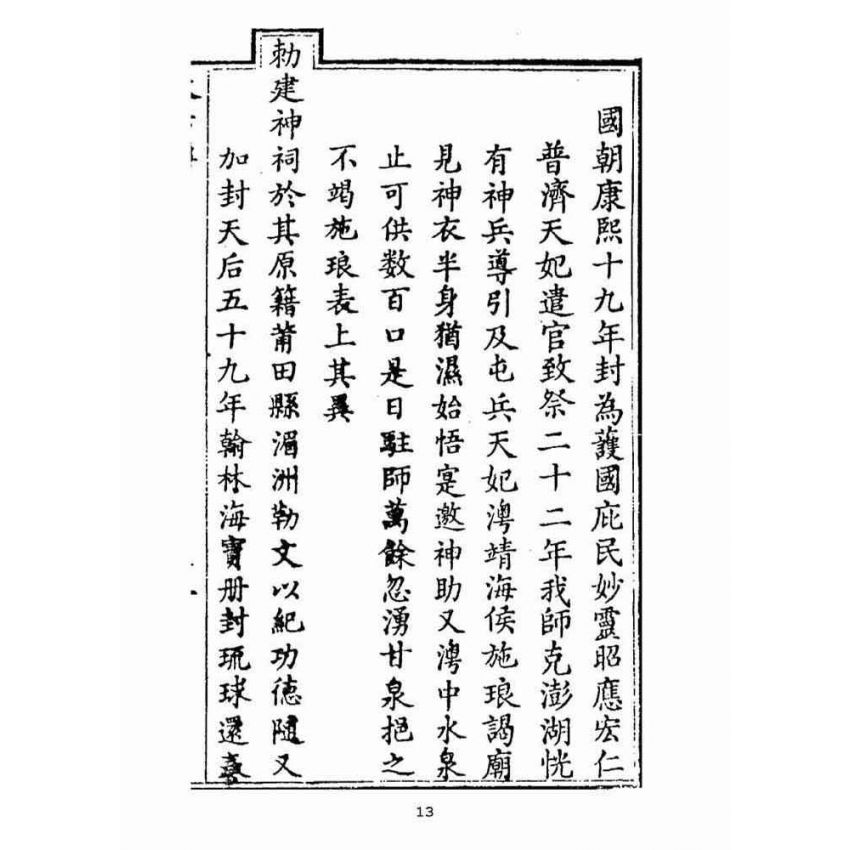 國朝康熙十九年封為護國庇民妙靈昭應宏仁
普濟天妃遣官致祭二十二年我師克澎湖恍
有神兵導引及屯兵天妃澳靖海侯施琅謁廟
見神衣半身猶濕始悟寔邀神助又澳中水泉
止可供数百口是日駐師萬餘忽湧甘泉挹之
不竭施琅表上其異
勅建神祠於其原籍莆田縣湄洲勒文以紀功德随又
加封天后五十九年翰林海寶册封琉球還
13